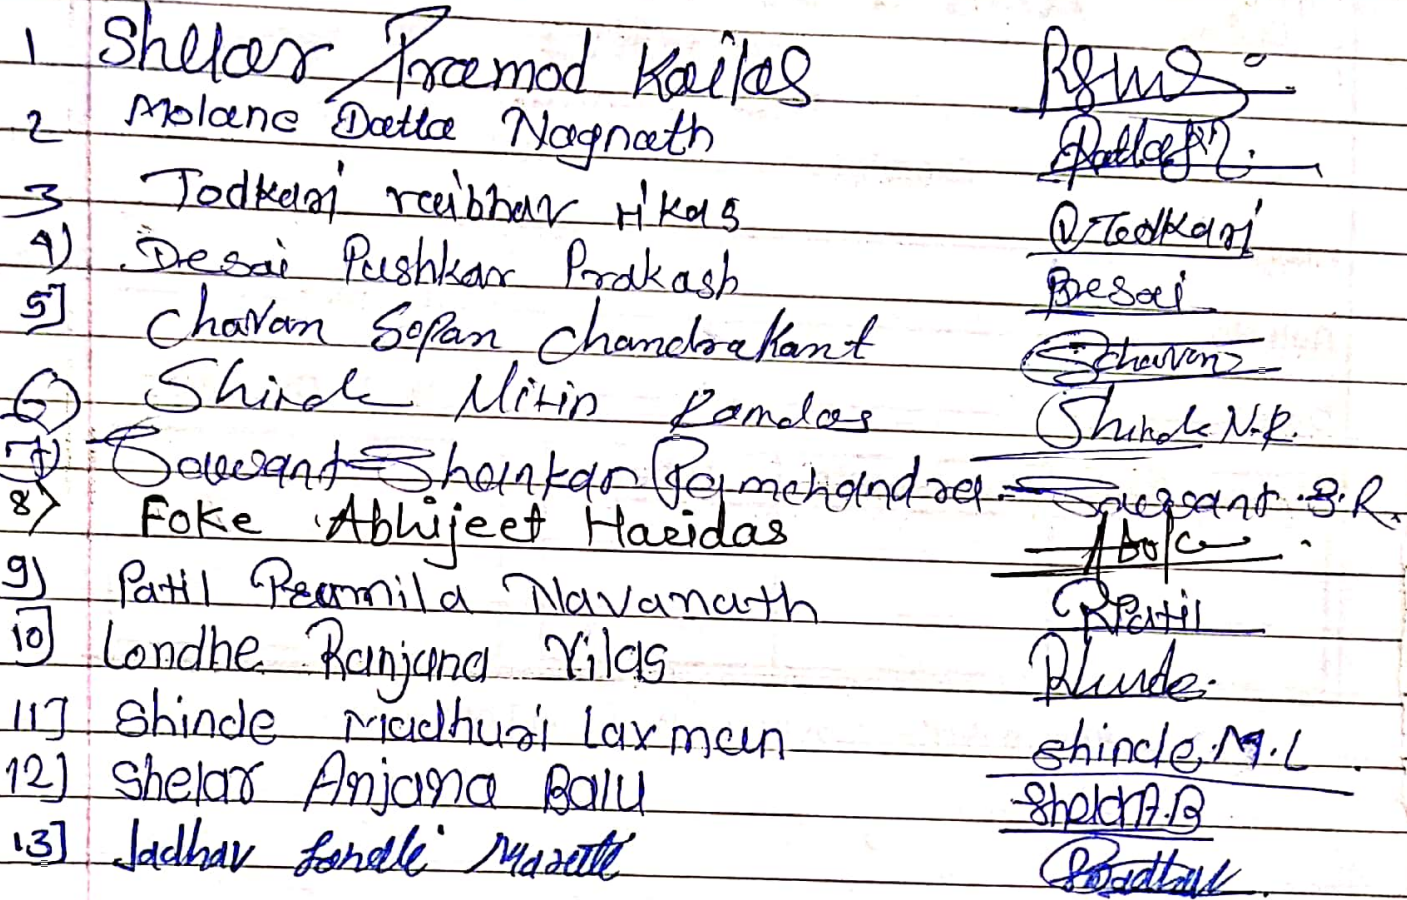 1 Shelar Pramod Kailas
2 Molane Datta Nagnath
3 Todkari vaibhav vikas V. Todkari
4) Desai Pushkar Prakash Desai
5] Chavan Sopan Chandrakant SChavan
6 Shinde Nitin Ramdas Shinde N.R.
7) Sawant Shankar Ramchandra Sawant S.R.
8) Foke Abhijeet Haridas
9) Patil Pramila Navanath PPatil
10] Londhe Ranjana Vilas
11] Shinde Madhuri Laxman Shinde.M.L
12] Shelar Anjana Balu Shelar A.B
13] Jadhav Maruti